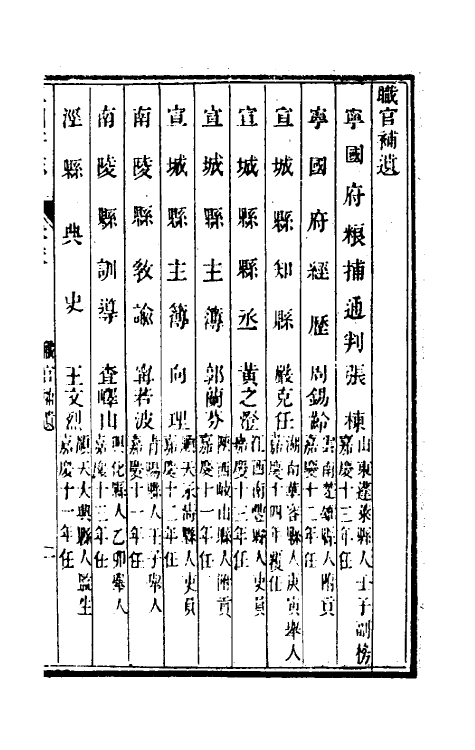 職官補遺
寧國府粮捕通判張棟山東蓬萊縣人壬子副榜嘉慶十三年任
寧國府經歷周錫齡雲南楚雄縣人附貢嘉慶十二年任
宣城縣知縣嚴克任湖南華容縣人庚寅舉人嘉慶十四年任
宣城縣縣丞黃之澄江西南豐縣人吏員嘉慶十三年任
宣城縣主簿郭蘭芬陝西岐山縣人附貢嘉慶十一年任
宣城縣主簿向理順天人吏員嘉慶十二年任
南陵縣教諭甯若波青陽縣人壬子舉人嘉慶十一年任
南陵縣訓導查嶧山縣人乙卯舉人嘉慶十三年任
涇縣典史王文烈順天大興縣人監生嘉慶十一年任
職官補遺